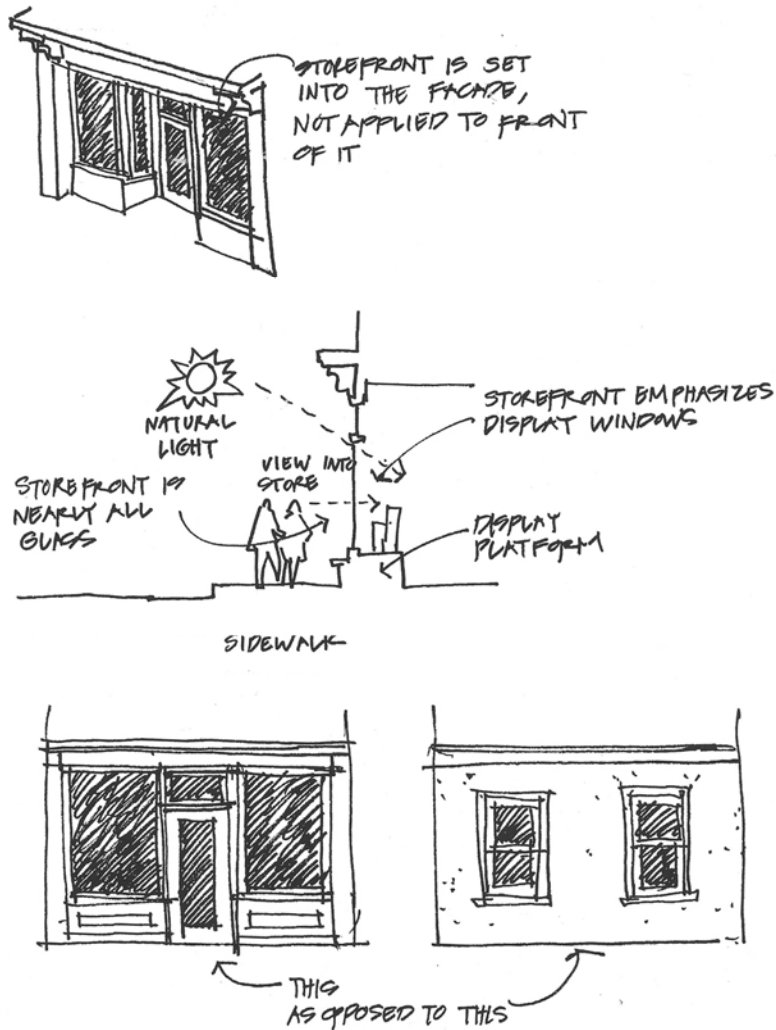 STOREFRONT IS SET
INTO THE FACADE,
NOT APPLIED TO FRONT
OF IT
NATURAL
LIGHT
STOREFRONT EMPHASIZES
DISPLAY WINDOWS
VIEW INTO
STORE
STOREFRONT IS
NEARLY ALL
GLASS
DISPLAY
PLATFORM
SIDEWALK
THIS
AS OPPOSED TO THIS